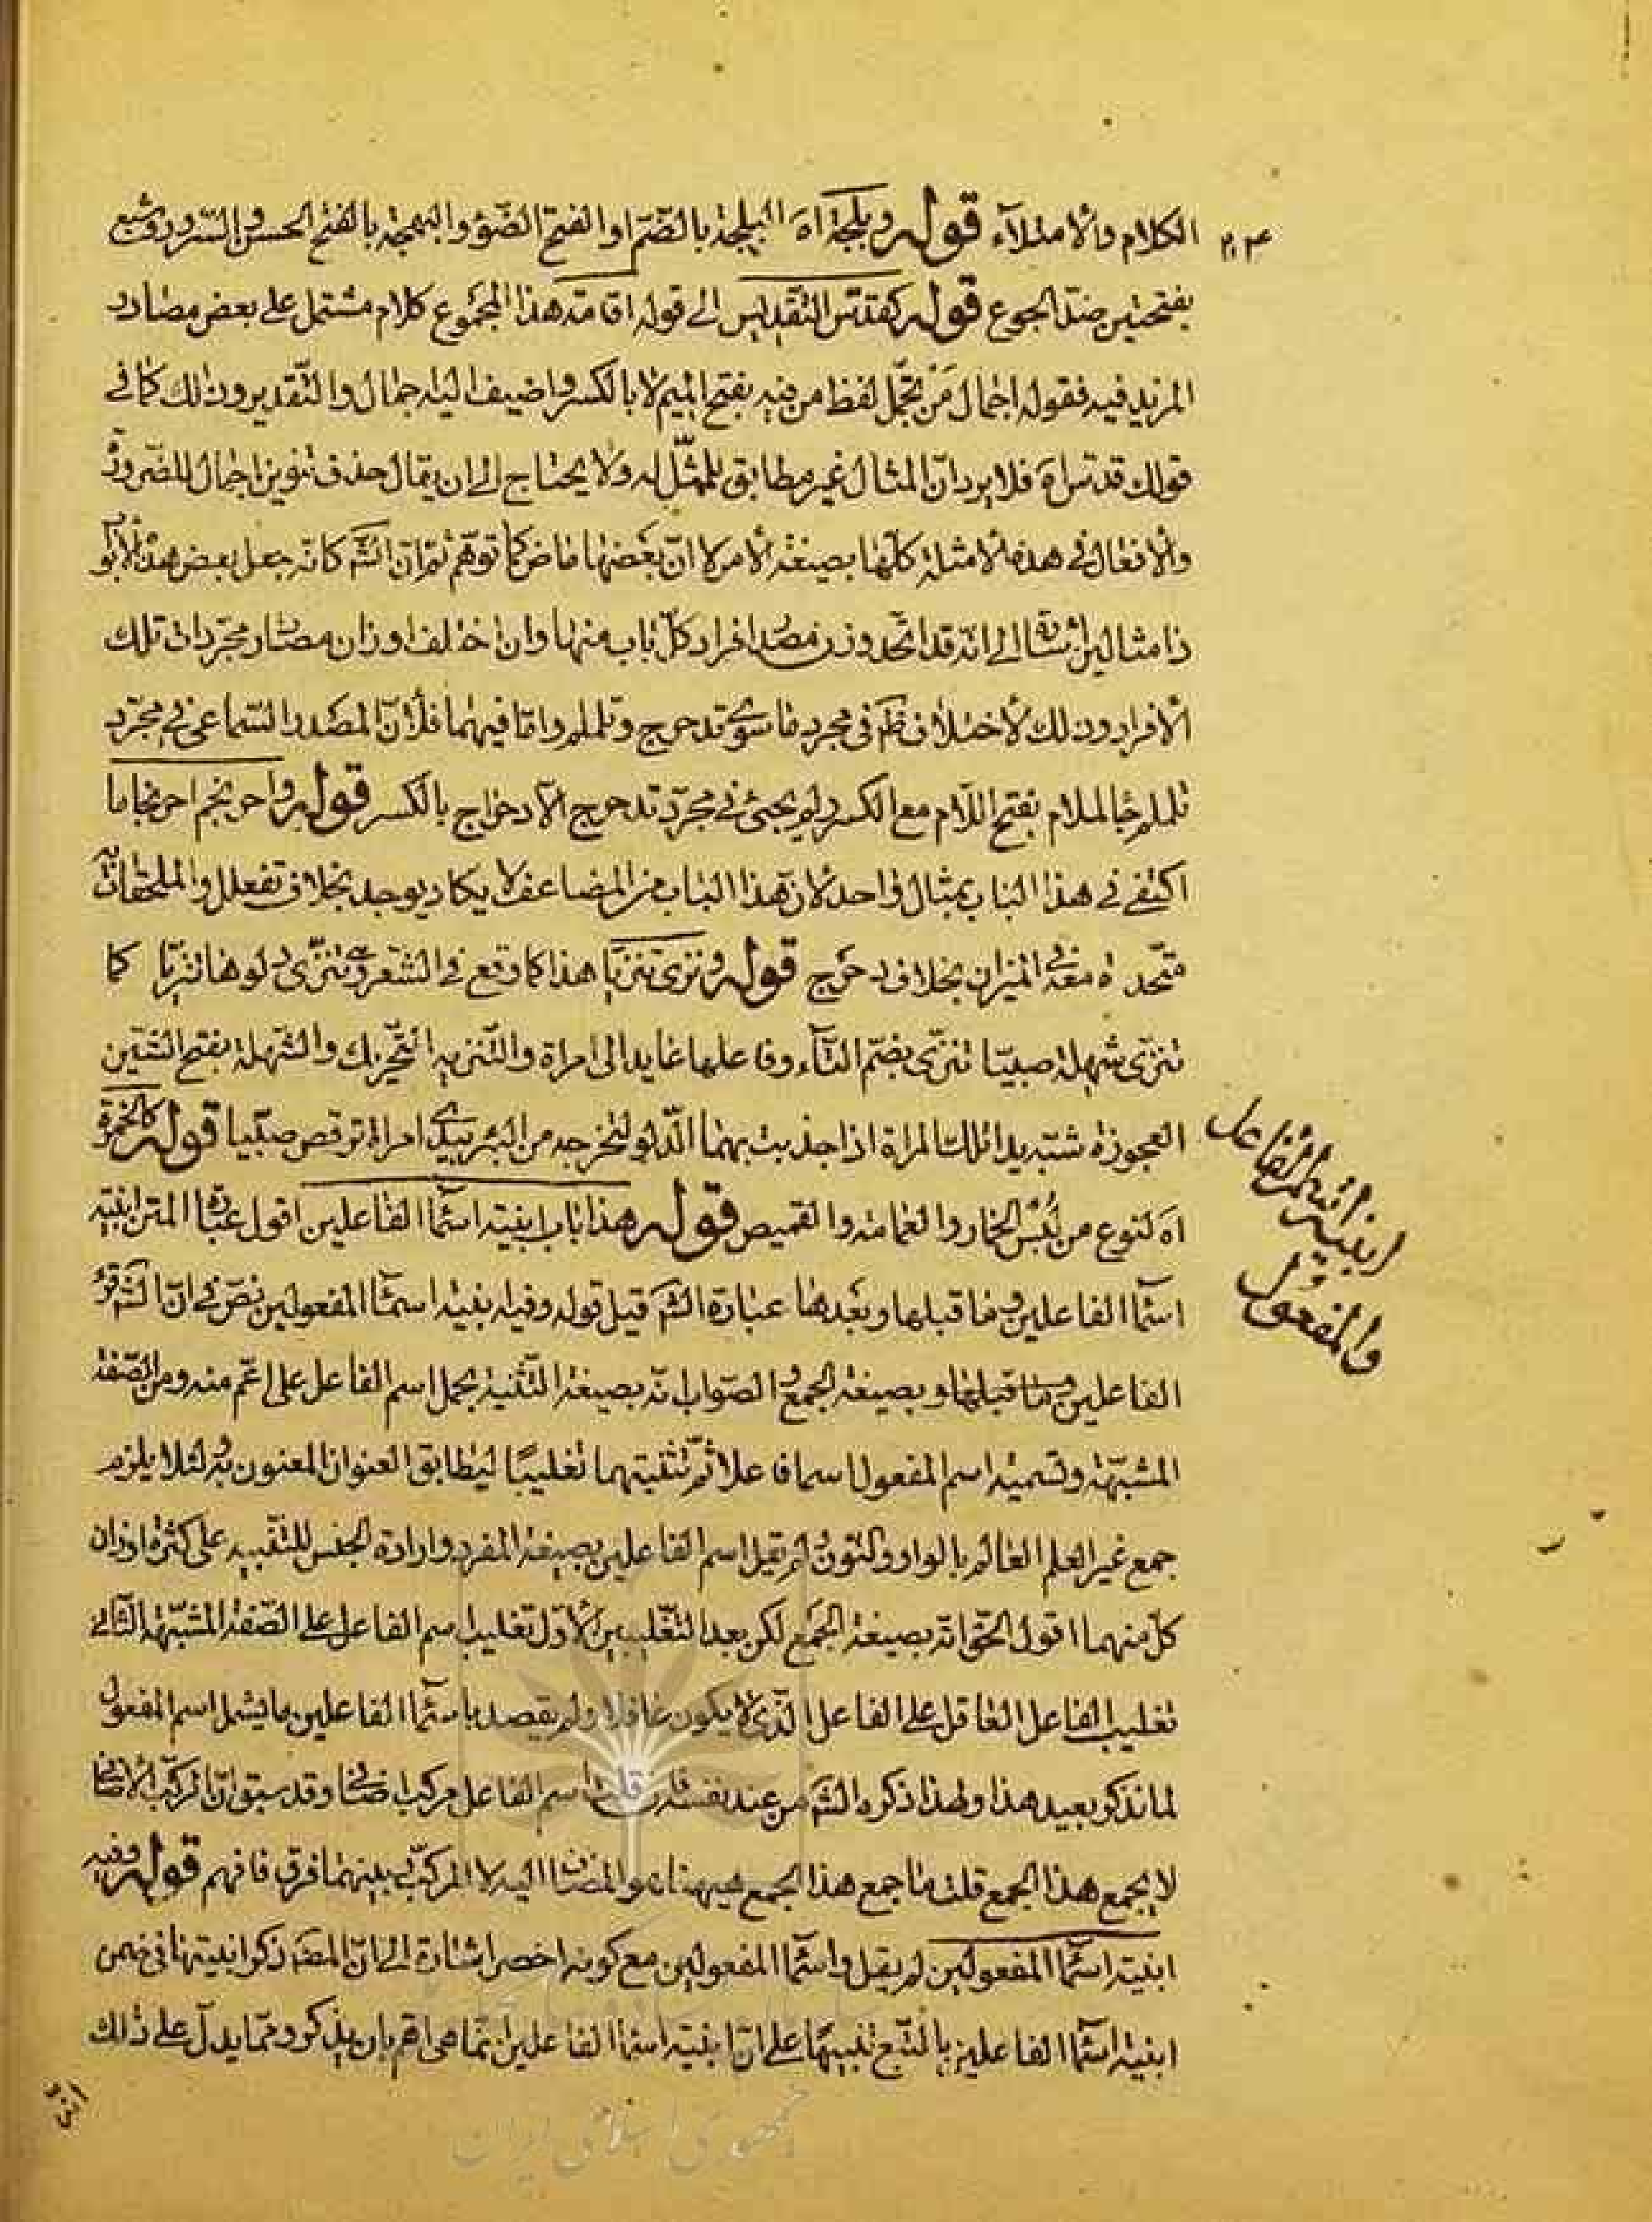 الكلام والامتلاء قوله وبلجة اه البلجة بالضم او الفتح الضوء والبهجة بالفتح الحسن والسرور وشبع
بفتحتين ضد الجوع قوله كقدس التقديس الى قوله اقامته هذا المجموع كلام مشتمل على بعض مصادر
المزيد فيه فقوله اجمال من تجمل لفظ من فيه بفتح الميم لا بالكسر واضيف اليه جمال والتقدير وذلك كما في
قولك قدتراه فلا يرد ان المثال غير مطابق للممثل له ولا يحتاج الى ان يقال حذف تنوين اجمال للضرورة
والافعال في هذه الامثلة كلها بصيغة الامر لا ان بعضها ماض كما توهم ثم ان الشم كانه جعل بعض هذه الابواب
ذا مثالين اشارة الى انه قد اتحد وزن مصدر افراد كل باب منها وان اختلف اوزان مصادر مجردات تلك
الافراد وذلك لاختلاف ظم في مجرد ما سوى تدحرج وتململ واما فيهما فلان المصدر السماعى في مجرد
تململ جا الململام بفتح اللام مع الكسر ولم يجئ في مجرد تدحرج الا دحراج بالكسر قوله واحرنجم احرنجاما
اكتفى في هذا الباب بمثال واحد لان هذا الباب من المضاعف لا يكاد يوجد بخلاف تفعلل والملحقات به
متحدة معه في الميزان بخلاف دحرج قوله ونزى تنزيا هذا كما وقع في الشعر وهى تنزى دلوها تنزيا كما
تنزى شهلة صبيا تنزى بضم التاء وفاعلها عايد الى امراة والتنزيه التحريك والشهلة بفتح الشين
العجوزة شبه يدا تلك المراة اذا جذبت بهما الدلو لتخرجه من البئر بيدى امراة ترقص صبيا قوله كالخمرة
اه لنوع من لبس الخمار والعمامة والقميص قوله هذا باب ابنية اسما الفاعلين اقول عبارة المتن ابنية
اسما الفاعلين وما قبلها وبعدها عبارة الشم قيل قوله وفيه ابنية اسما المفعولين نص في ان الشم قرء
الفاعلين وما قبلها وبصيغة الجمع والصواب انه بصيغة التثنية بحمل اسم الفاعل على اعم منه ومن الصفة
المشبهة وتسمية اسم المفعول اسما فاعلا ثم تثنيتهما تغليبا ليطابق العنوان المعنون به لئلا يلزم
جمع غير العلم العالم بالواو والنون ولم يقل اسم الفاعلين بصيغة المفرد وارادة الجنس للتنبيه على كثرة اوزان
كل منهما اقول الحق انه بصيغة الجمع لكن بعد التغليبين الاول تغليب اسم الفاعل على الصفة المشبهة الثانى
تغليب الفاعل العاقل على الفاعل الذى لا يكون عاقلا ولم يقصد باسما الفاعلين ما يشمل اسم المفعول
لما نذكر بعيد هذا ولهذا ذكره الشم من عند نفسه فان قلت اسم الفاعل مركب اضافى وقد سبق ان المركب الاضافى
لا يجمع هذا الجمع قلت ما جمع هذا الجمع هيهنا هو المضاف اليه لا المركب وبينهما فرق فافهم قوله وفيه
ابنية اسما المفعولين لم يقل واسما المفعولين مع كونه اخصر اشارة الى ان المص ذكر ابنيتها في ضمن
ابنية اسما الفاعلين بالتبع تنبيها على ان ابنية اسما الفاعلين انما هى اهم بان يذكر ومما يدل على ذلك
ابنية اسم الفاعل
والمفعول
جمهوری اسلامی ایران